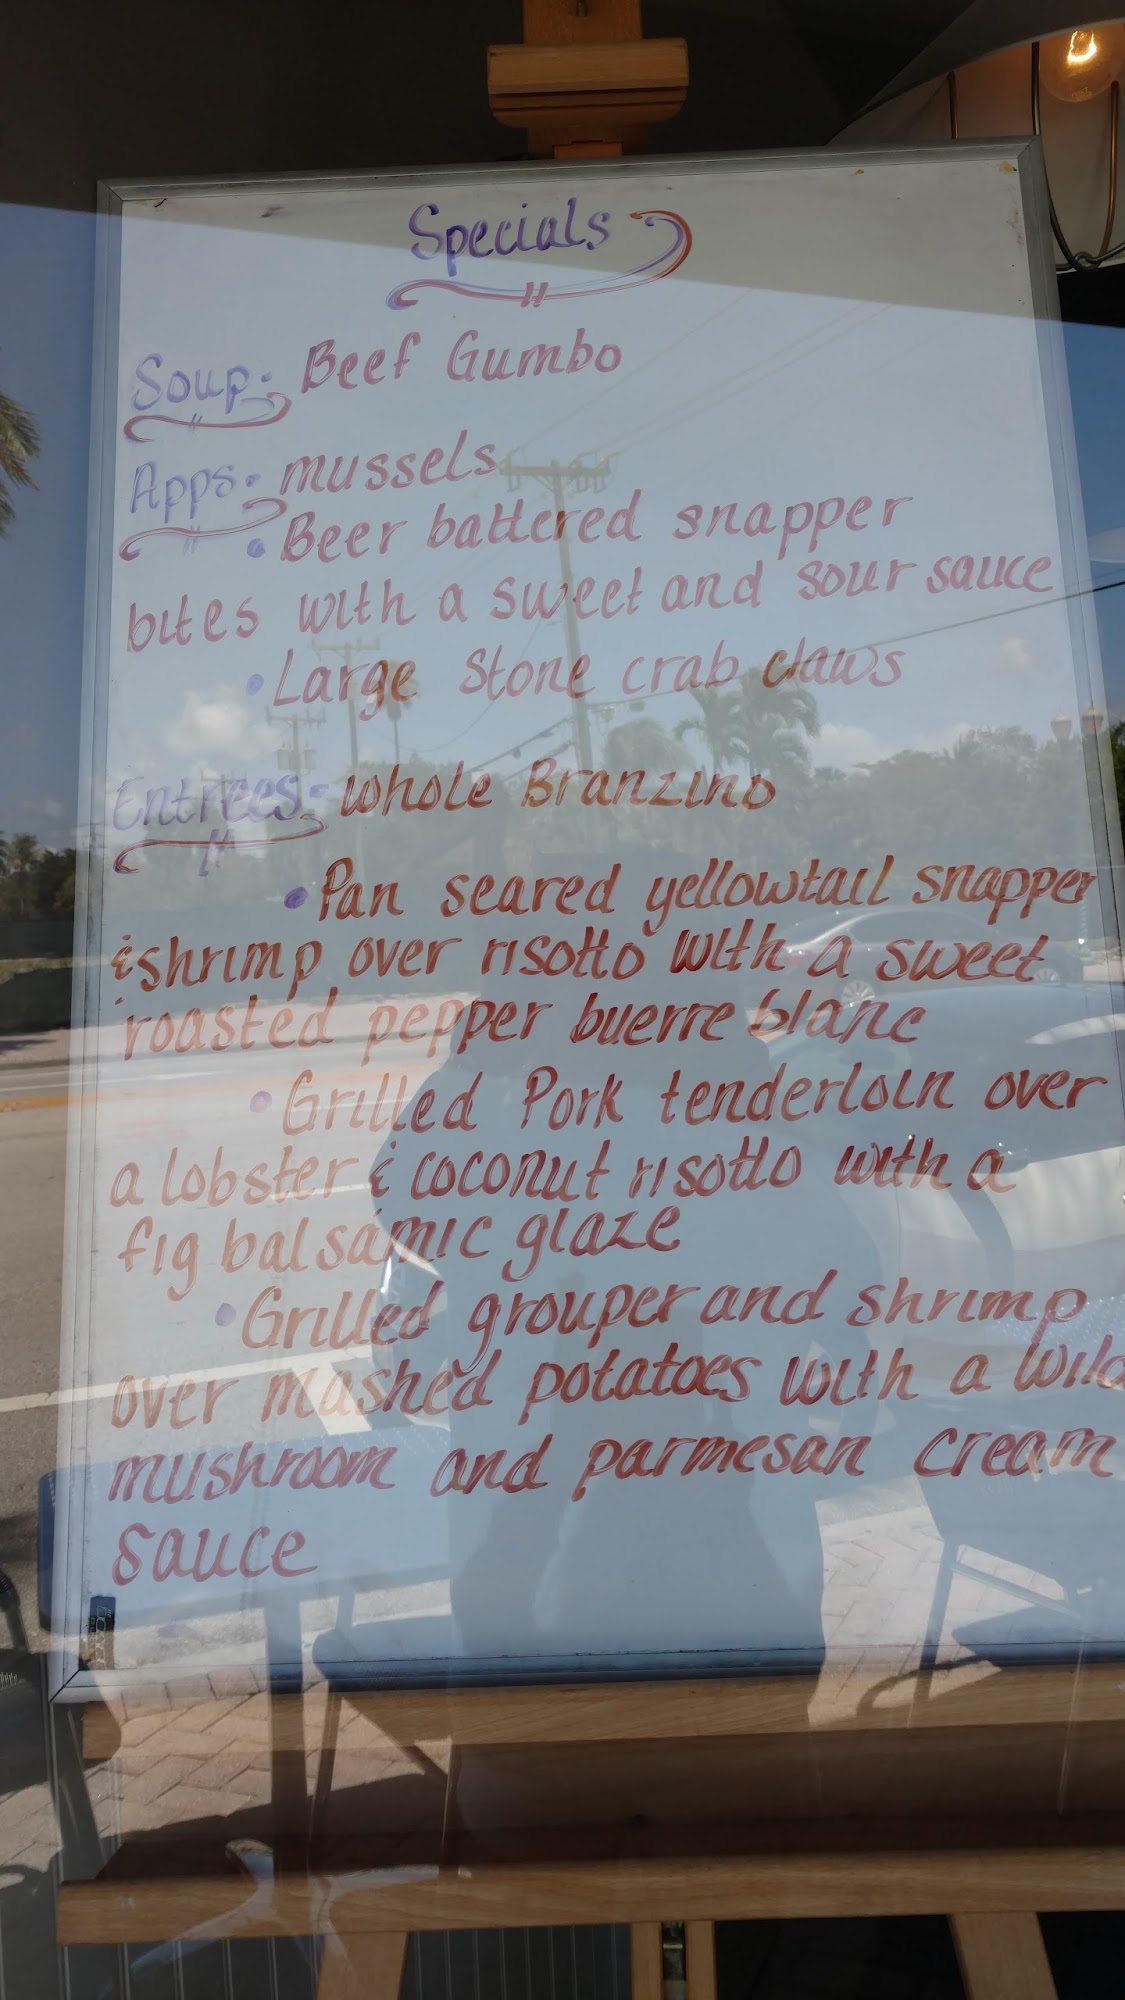 Specials
Soup- Beef Gumbo
Apps- mussels
• Beer battered snapper
bites with a sweet and sour sauce
• Large Stone crab claws
Entrees- whole Branzino
• Pan seared yellowtail snapper
& shrimp over risotto with a sweet
roasted pepper buerre blanc
• Grilled Pork tenderloin over
a lobster & coconut risotto with a
fig balsamic glaze
• Grilled grouper and shrimp
over mashed potatoes with a wild
mushroom and parmesan cream
sauce